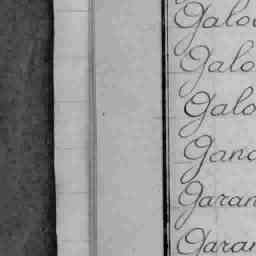 Galo
Galo
Galo
Gano
Garan
Garan